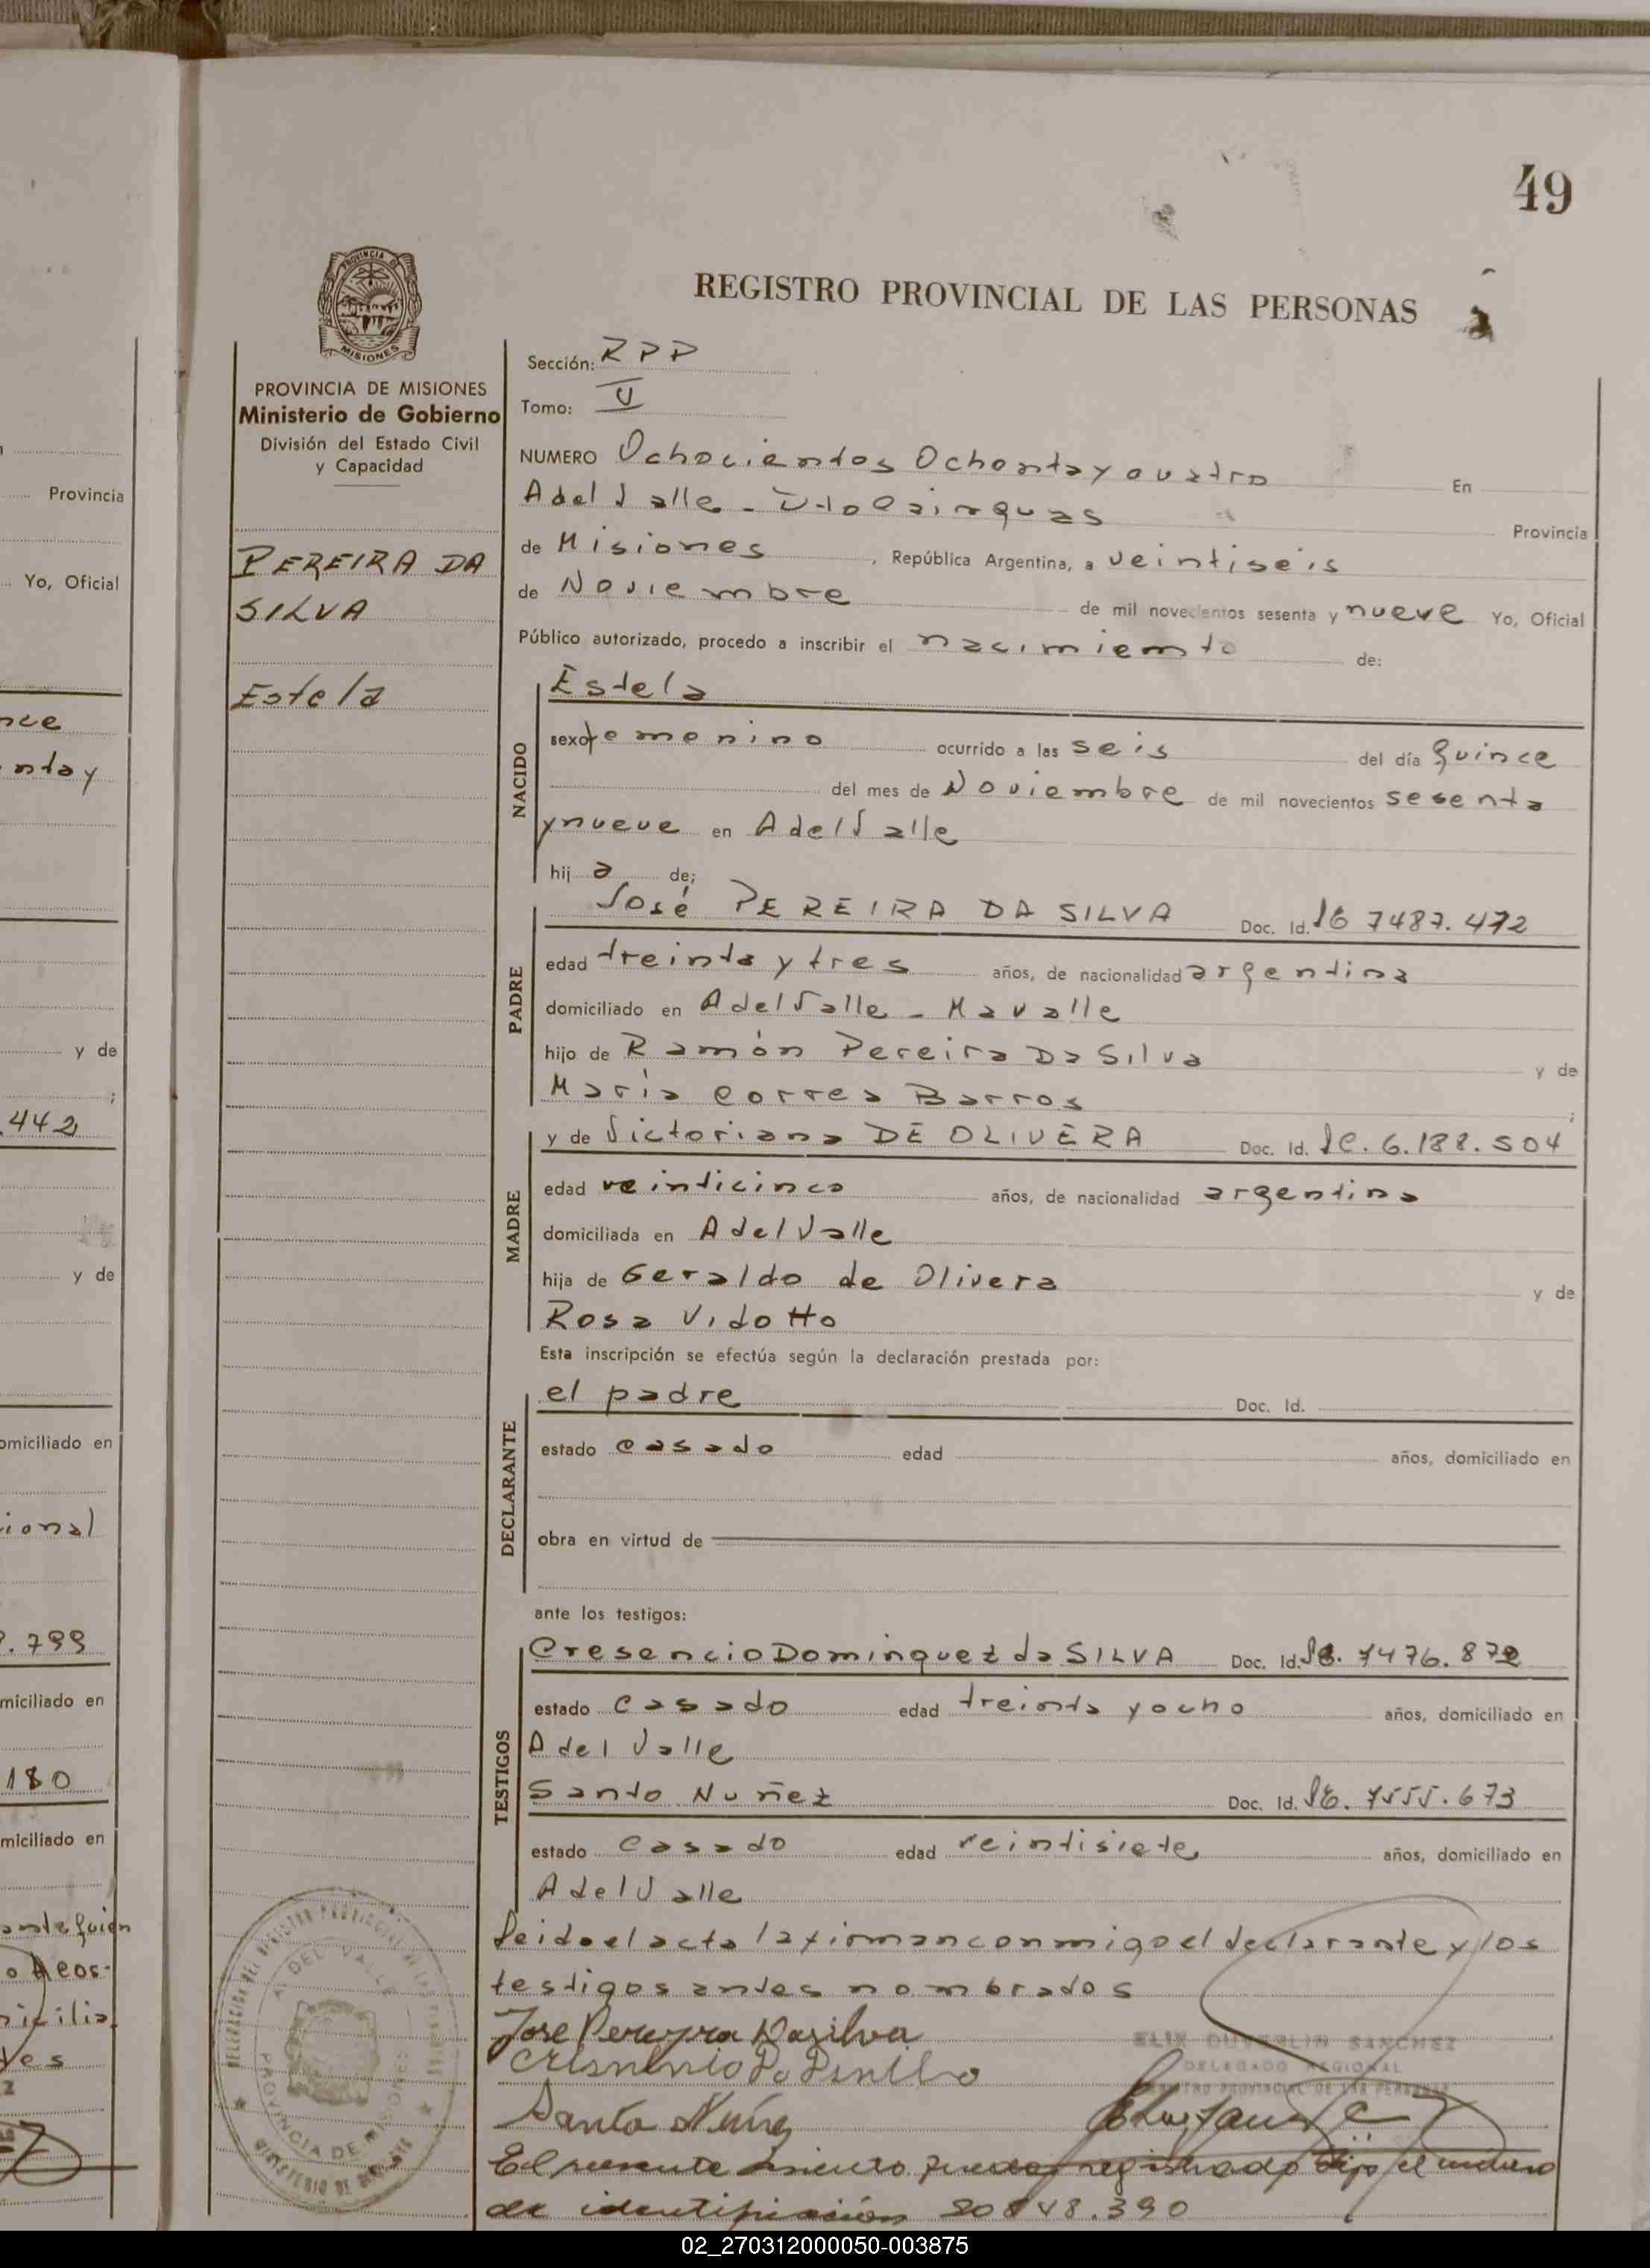 49
REGISTRO PROVINCIAL DE LAS PERSONAS
PROVINCIA DE
MISIONES
PROVINCIA DE MISIONES
Ministerio de Gobierno
División del Estado Civil
y Capacidad
PEREIRA DA
SILVA
Estela
Sección: RPP
Tomo: V
NUMERO Ochocientos Ochenta y cuatro En
A del Valle - Dto Cainguas Provincia
de Misiones, República Argentina, a veintiseis
de Noviembre de mil novecientos sesenta y nueve Yo, Oficial
Público autorizado, procedo a inscribir el nacimiento de:
NACIDO
Estela
sexo femenino ocurrido a las seis del día quince
del mes de Noviembre de mil novecientos sesenta
y nueve en A del Valle
hij a de;
PADRE
José PEREIRA DA SILVA Doc. Id. 7487.472
edad treinta y tres años, de nacionalidad argentina
domiciliado en A del Valle - Mavalle
hijo de Ramón Pereira Da Silva y de
María Correa Barros ;
MADRE
y de Victoriana DE OLIVERA Doc. Id. lc. 6.188.504
edad veinticinco años, de nacionalidad argentina
domiciliada en A del Valle
hija de Geraldo de Olivera y de
Rosa Vidotto
Esta inscripción se efectúa según la declaración prestada por:
DECLARANTE
el padre Doc. Id.
estado casado edad años, domiciliado en
obra en virtud de
ante los testigos:
TESTIGOS
Cresencio Dominguez da SILVA Doc. Id. 7476.872
estado casado edad treinta y ocho años, domiciliado en
A del Valle
Santo Nuñez Doc. Id. 7555.673
estado casado edad veintisiete años, domiciliado en
A del Valle
Leido el acta la firman conmigo el declarante y los
testigos antes nombrados
Jose Pereyra Dasilva
Santo Nuñez
SANCHEZ
DELEGADO REGIONAL
REGISTRO PROVINCIAL DE LAS PERSONAS
El presente asiento queda registrado bajo el número
de identificación 20848.390
DELEGACION DEL REGISTRO PROVINCIAL DE LAS PERSONAS
A. DEL VALLE
PROVINCIA DE MISIONES
MINISTERIO DE GOBIERNO
Provincia
Yo, Oficial
y de
442
y de
omiciliado en
799
miciliado en
180
miciliado en
02_270312000050-003875